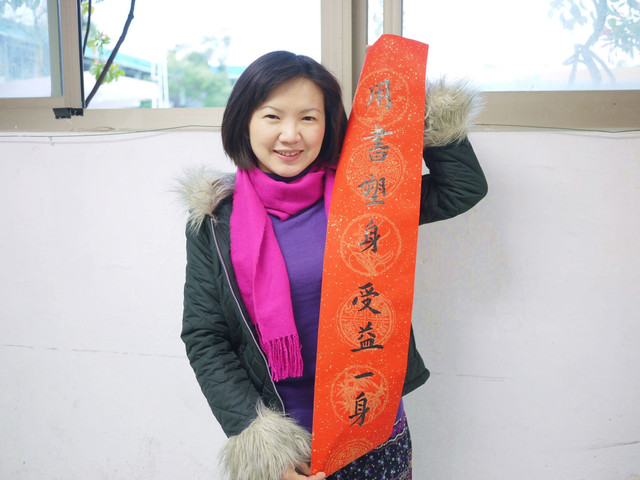 用書塑身受益一身